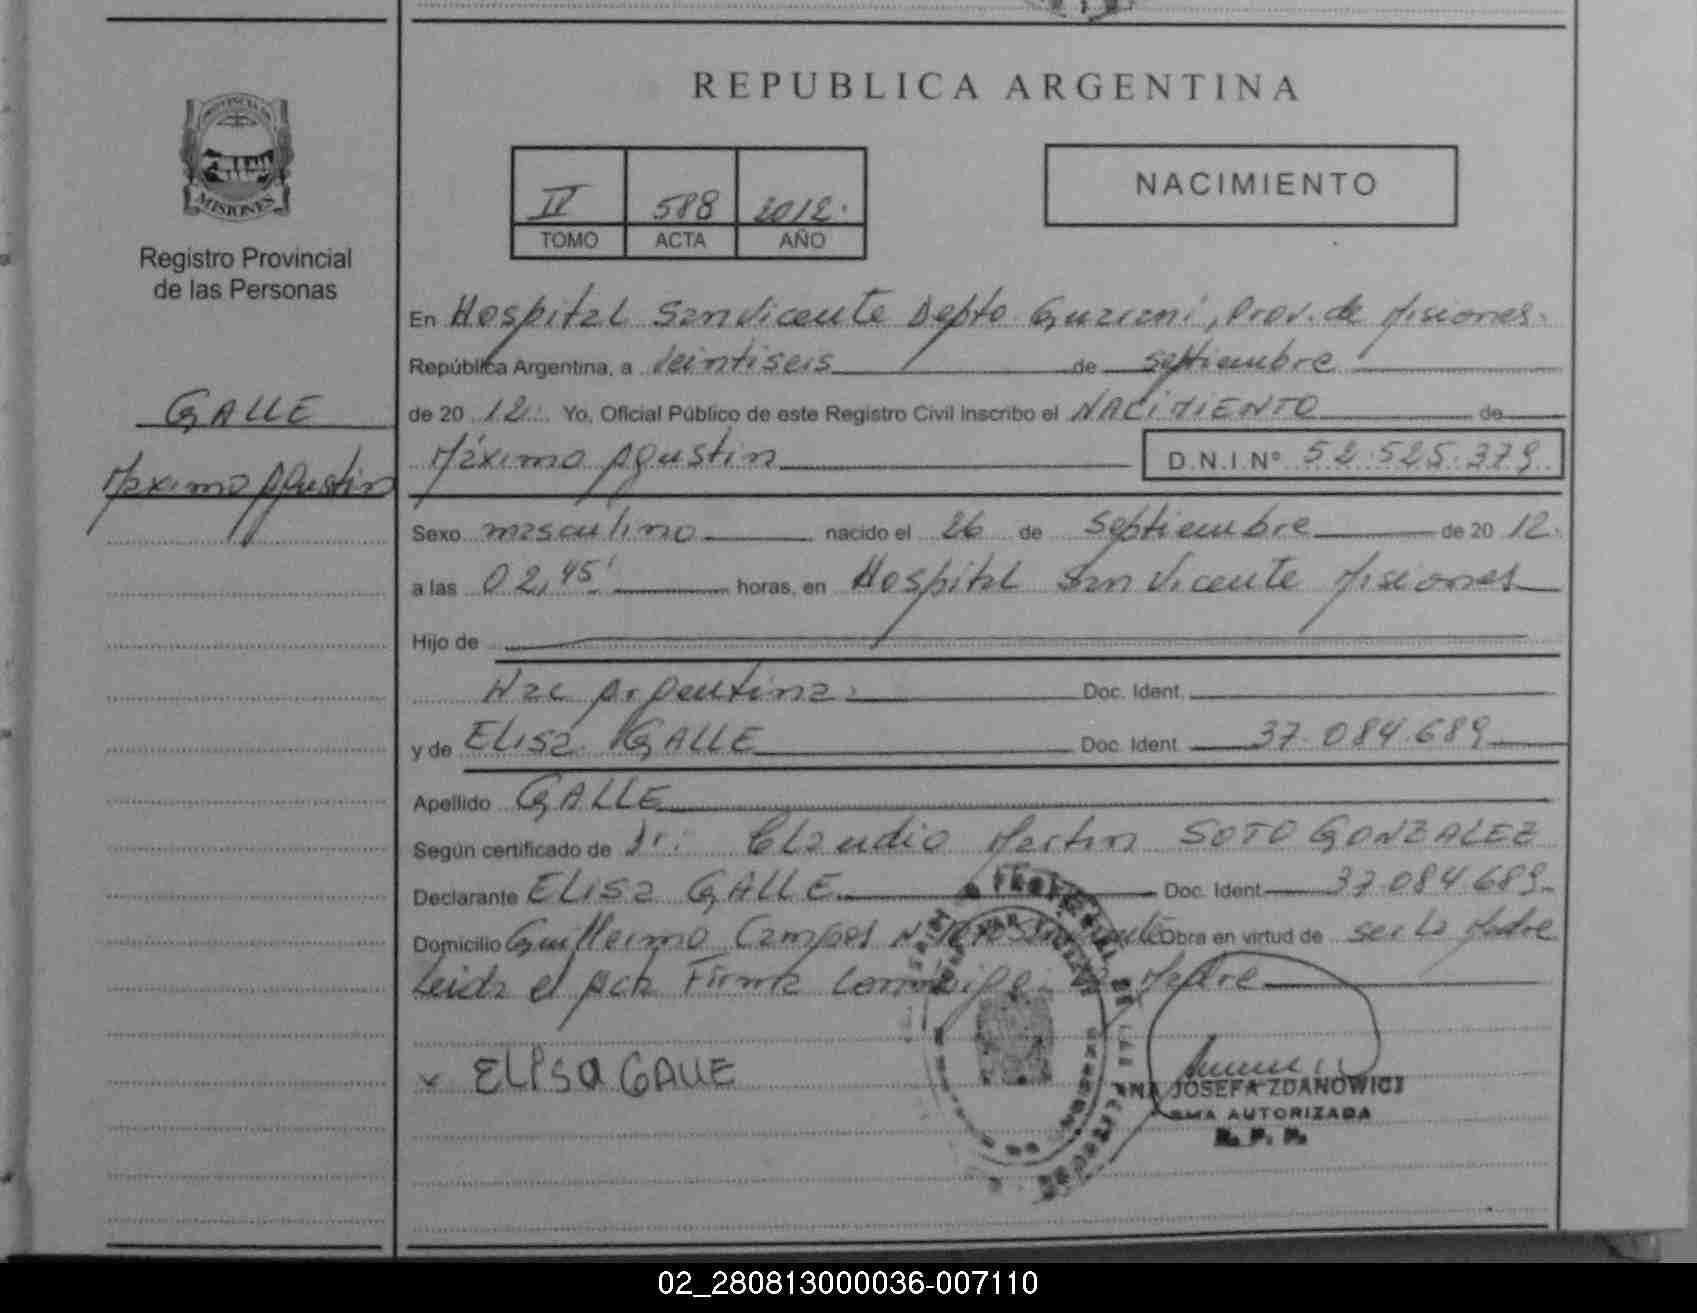 REPUBLICA ARGENTINA
MISIONES
Registro Provincial
de las Personas
IV 588 2012.
TOMO ACTA AÑO
NACIMIENTO
GALLE
Máximo Agustin
En Hospital San Vicente Depto Guarani, Prov. de Misiones.
República Argentina, a Veintiseis de septiembre
de 20 12. Yo, Oficial Público de este Registro Civil inscribo el NACIMIENTO de
Máximo Agustin D.N.I.Nº 52.525.379
Sexo masculino nacido el 26 de Septiembre de 20 12.
a las 02,45' horas, en Hospital San Vicente Misiones
Hijo de
Nac Argentina. Doc. Ident.
y de Elisa GALLE Doc. Ident. 37.084.689
Apellido GALLE
Según certificado de Dr: Claudio Martin SOTO GONZALEZ
Declarante Elisa GALLE Doc. Ident. 37.084.689
Domicilio Guillermo Campos Obra en virtud de ser la Madre
Leida el Acta Firma Conmigo la Madre
x ELISA GALLE
JOSEFA ZDANOWICZ
AUTORIZADA
R. P. P.
02_280813000036-007110